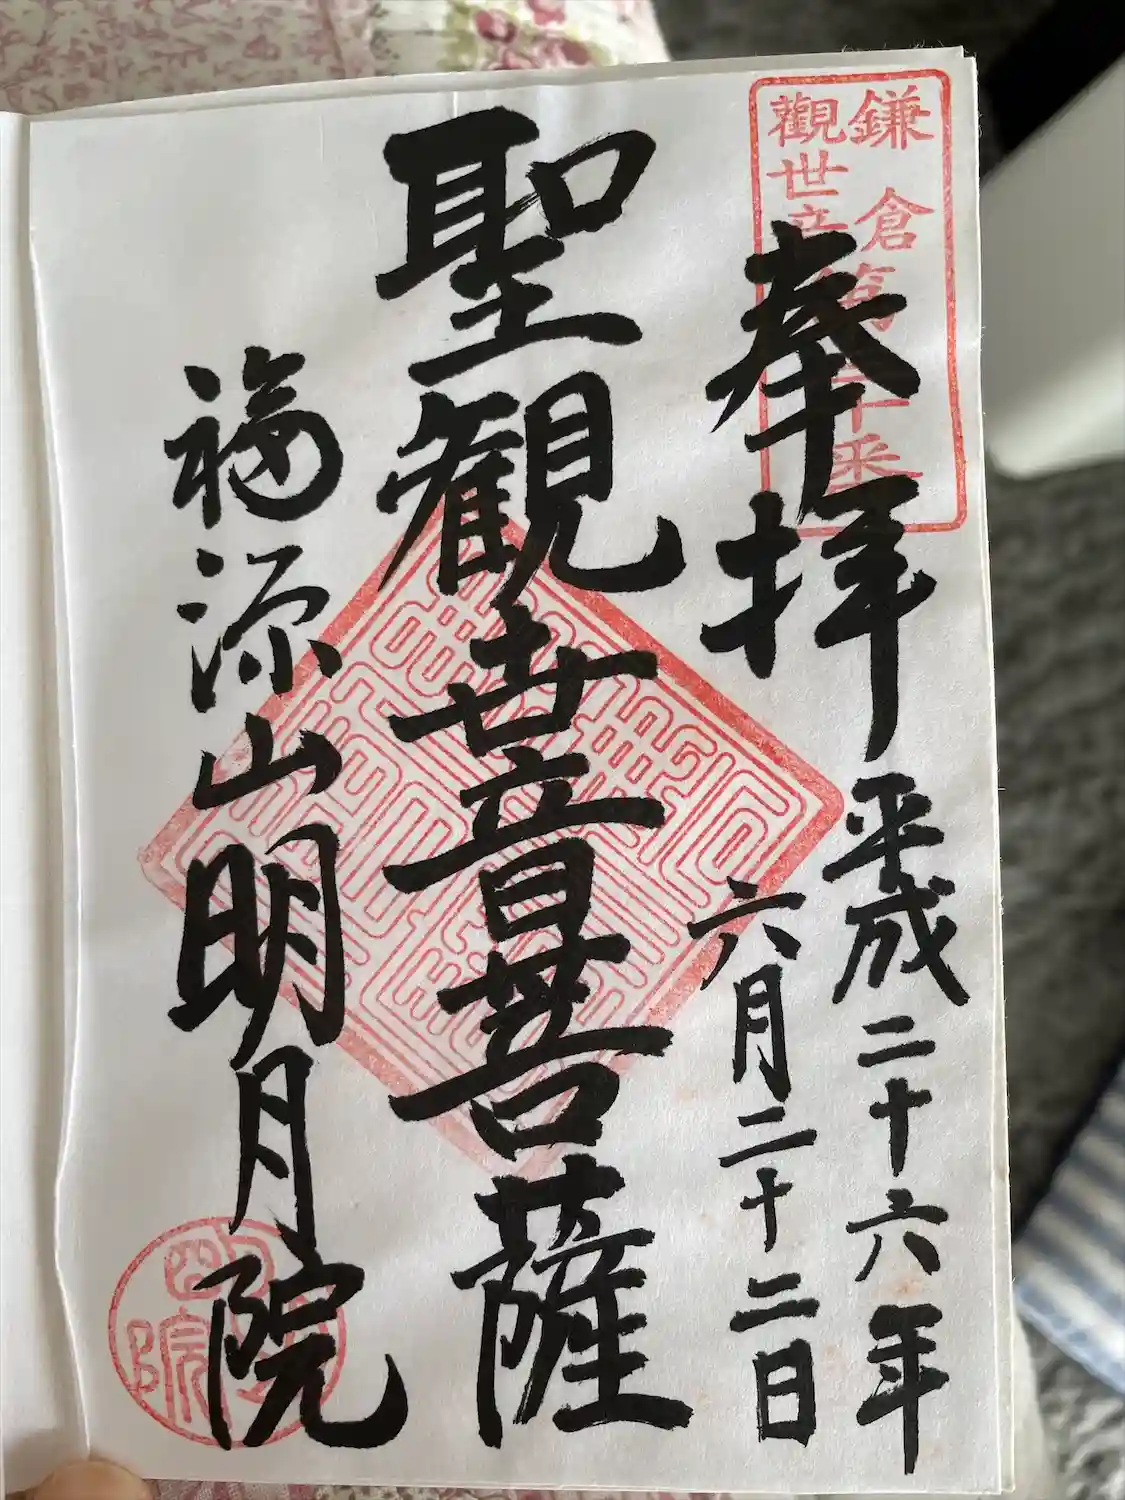 鎌倉第三十番
觀世音
奉拝
平成二十六年
六月二十二日
聖観世音菩薩
福源山明月院